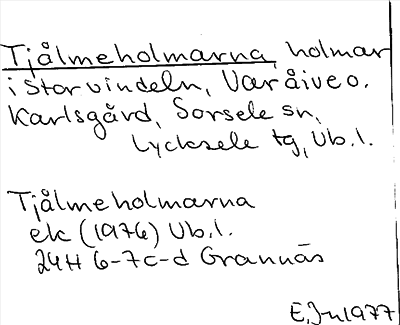 Tjålmeholmarna, holmar
i Storvindeln, Varåive o.
Karlsgård, Sorsele sn,
Lycksele tg, Vb.l.
Tjålmeholmarna
ek (1976) Vb.l.
24H 6-7c-d Grannäs
E.J-n 1977